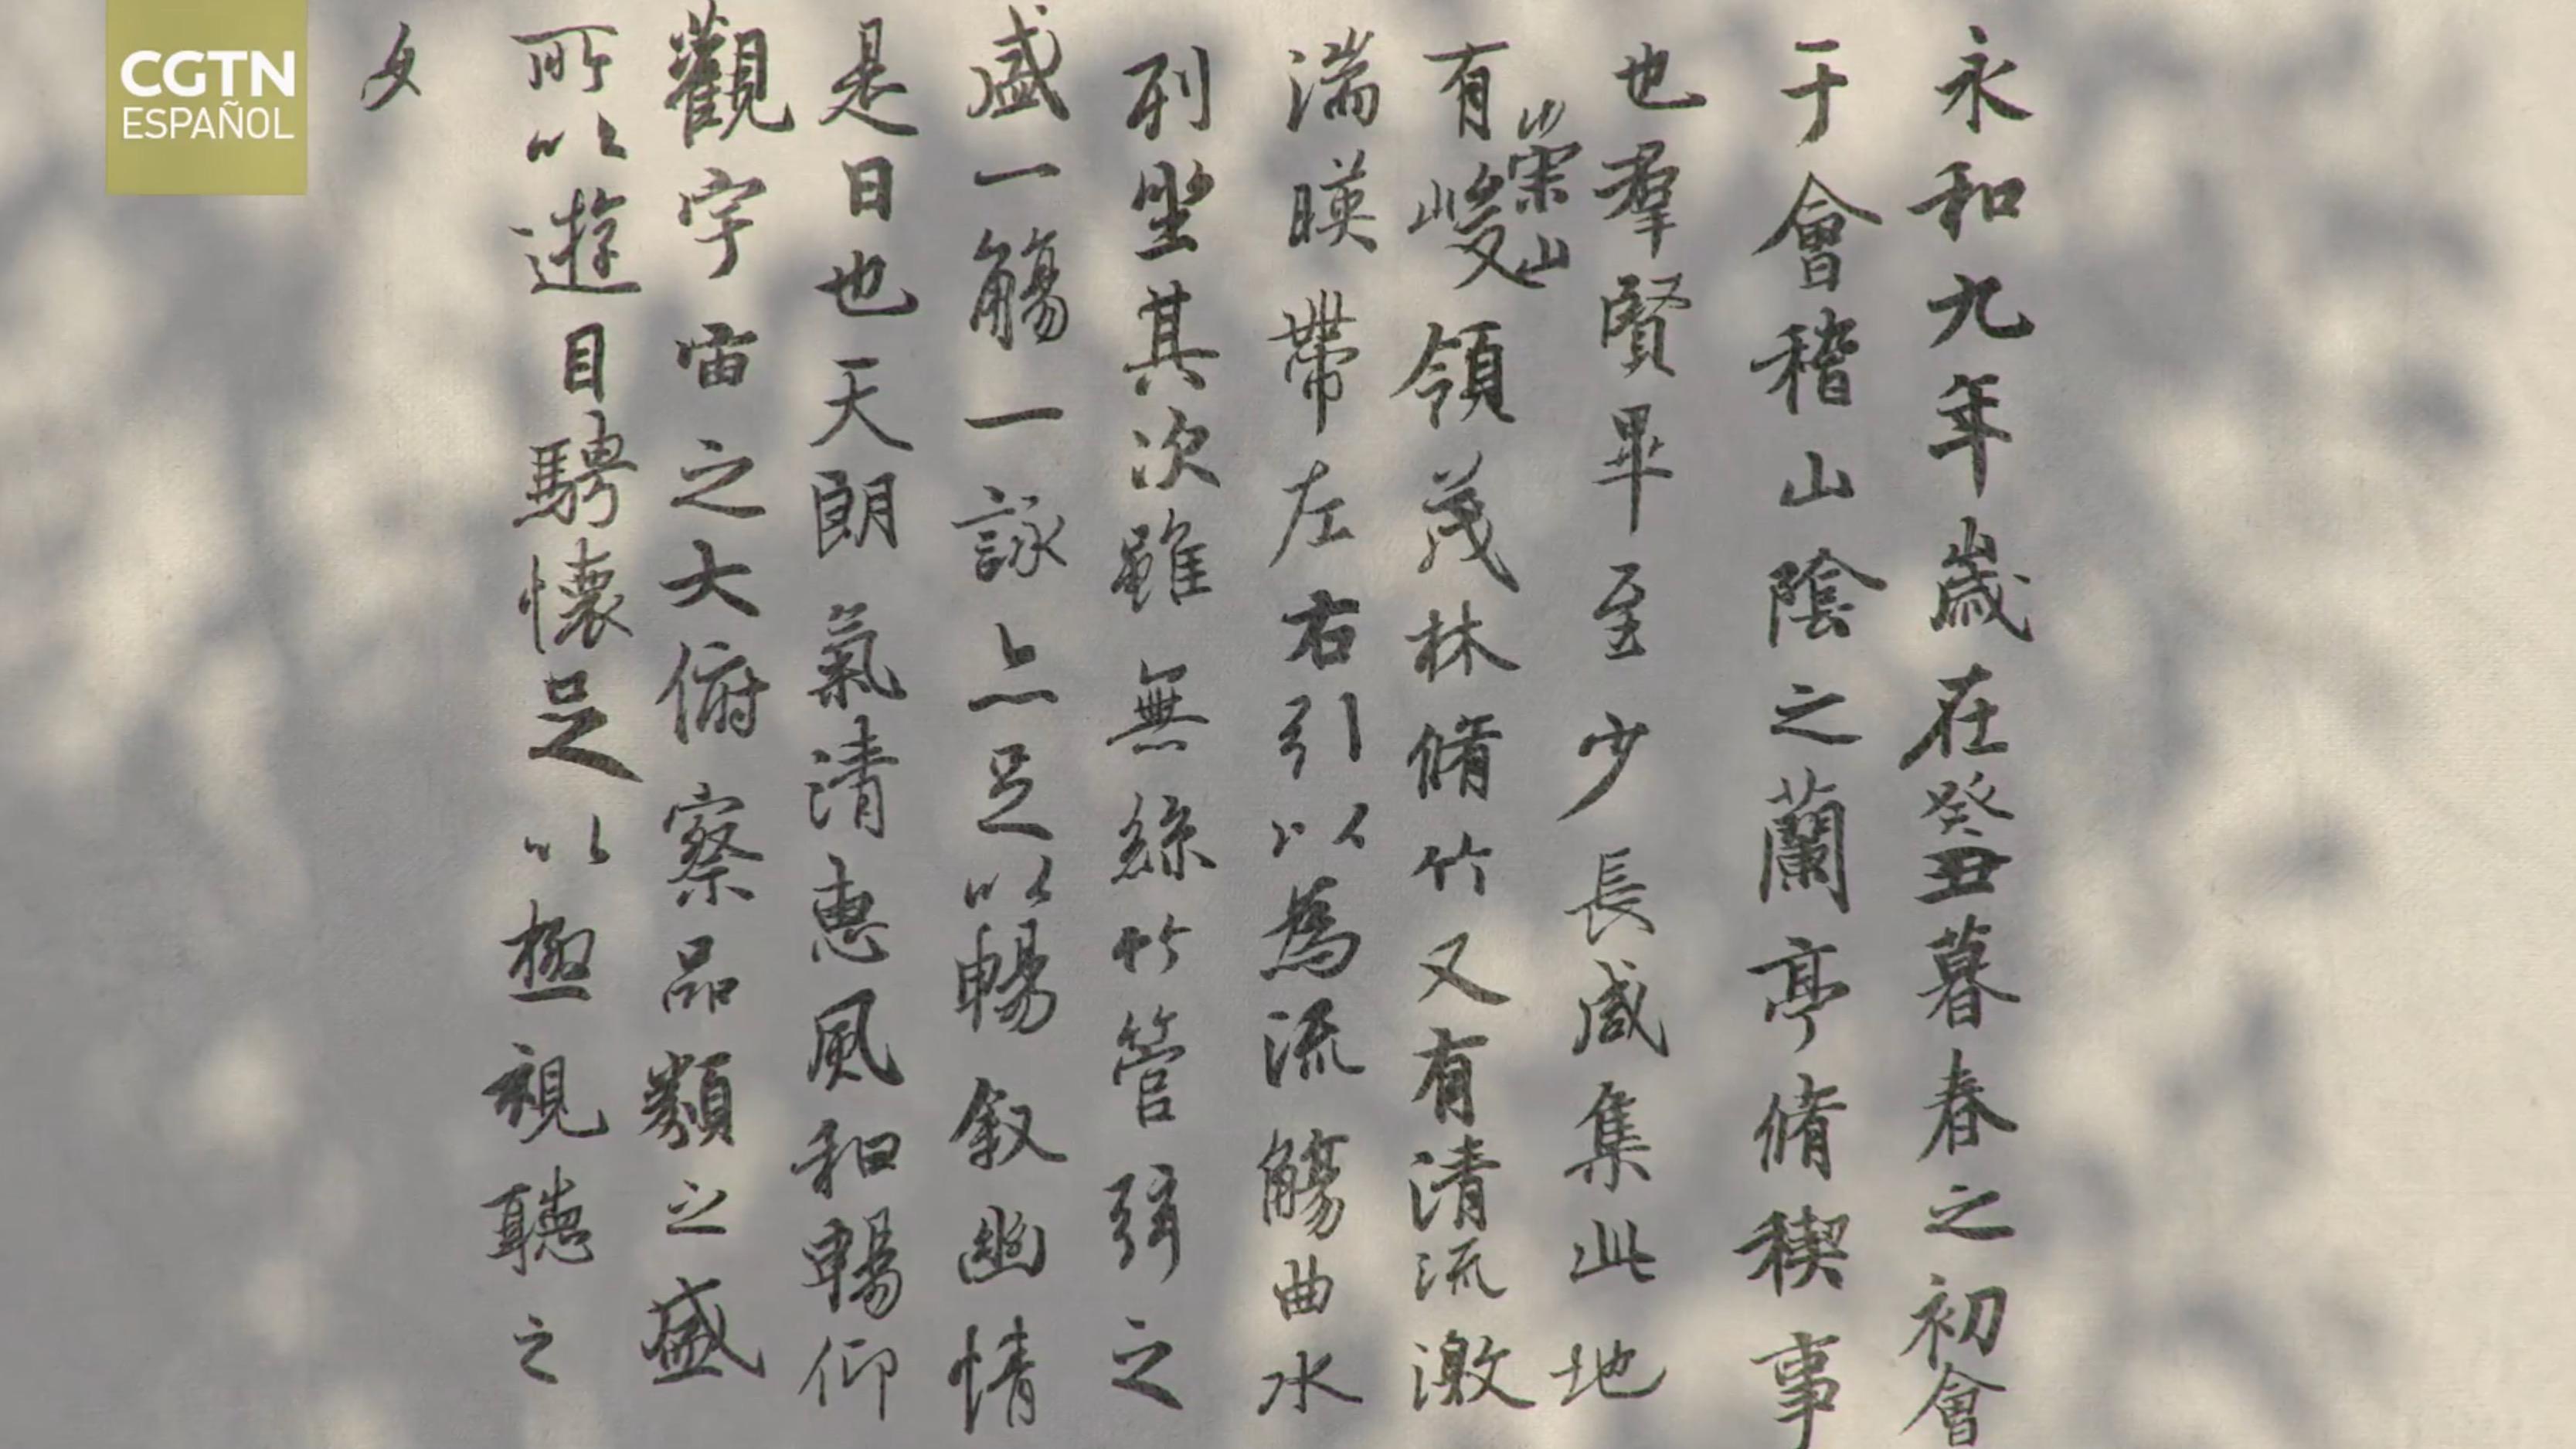 CGTN
ESPAÑOL
永和九年歲在癸丑暮春之初會
于會稽山陰之蘭亭脩稧事
也羣賢畢至少長咸集此地
有崇山峻領茂林脩竹又有清流激
湍暎帶左右引以為流觴曲水
列坐其次雖無絲竹管弦之
盛一觴一詠亦足以暢叙幽情
是日也天朗氣清惠風和暢仰
觀宇宙之大俯察品類之盛
所以遊目騁懷足以極視聽之